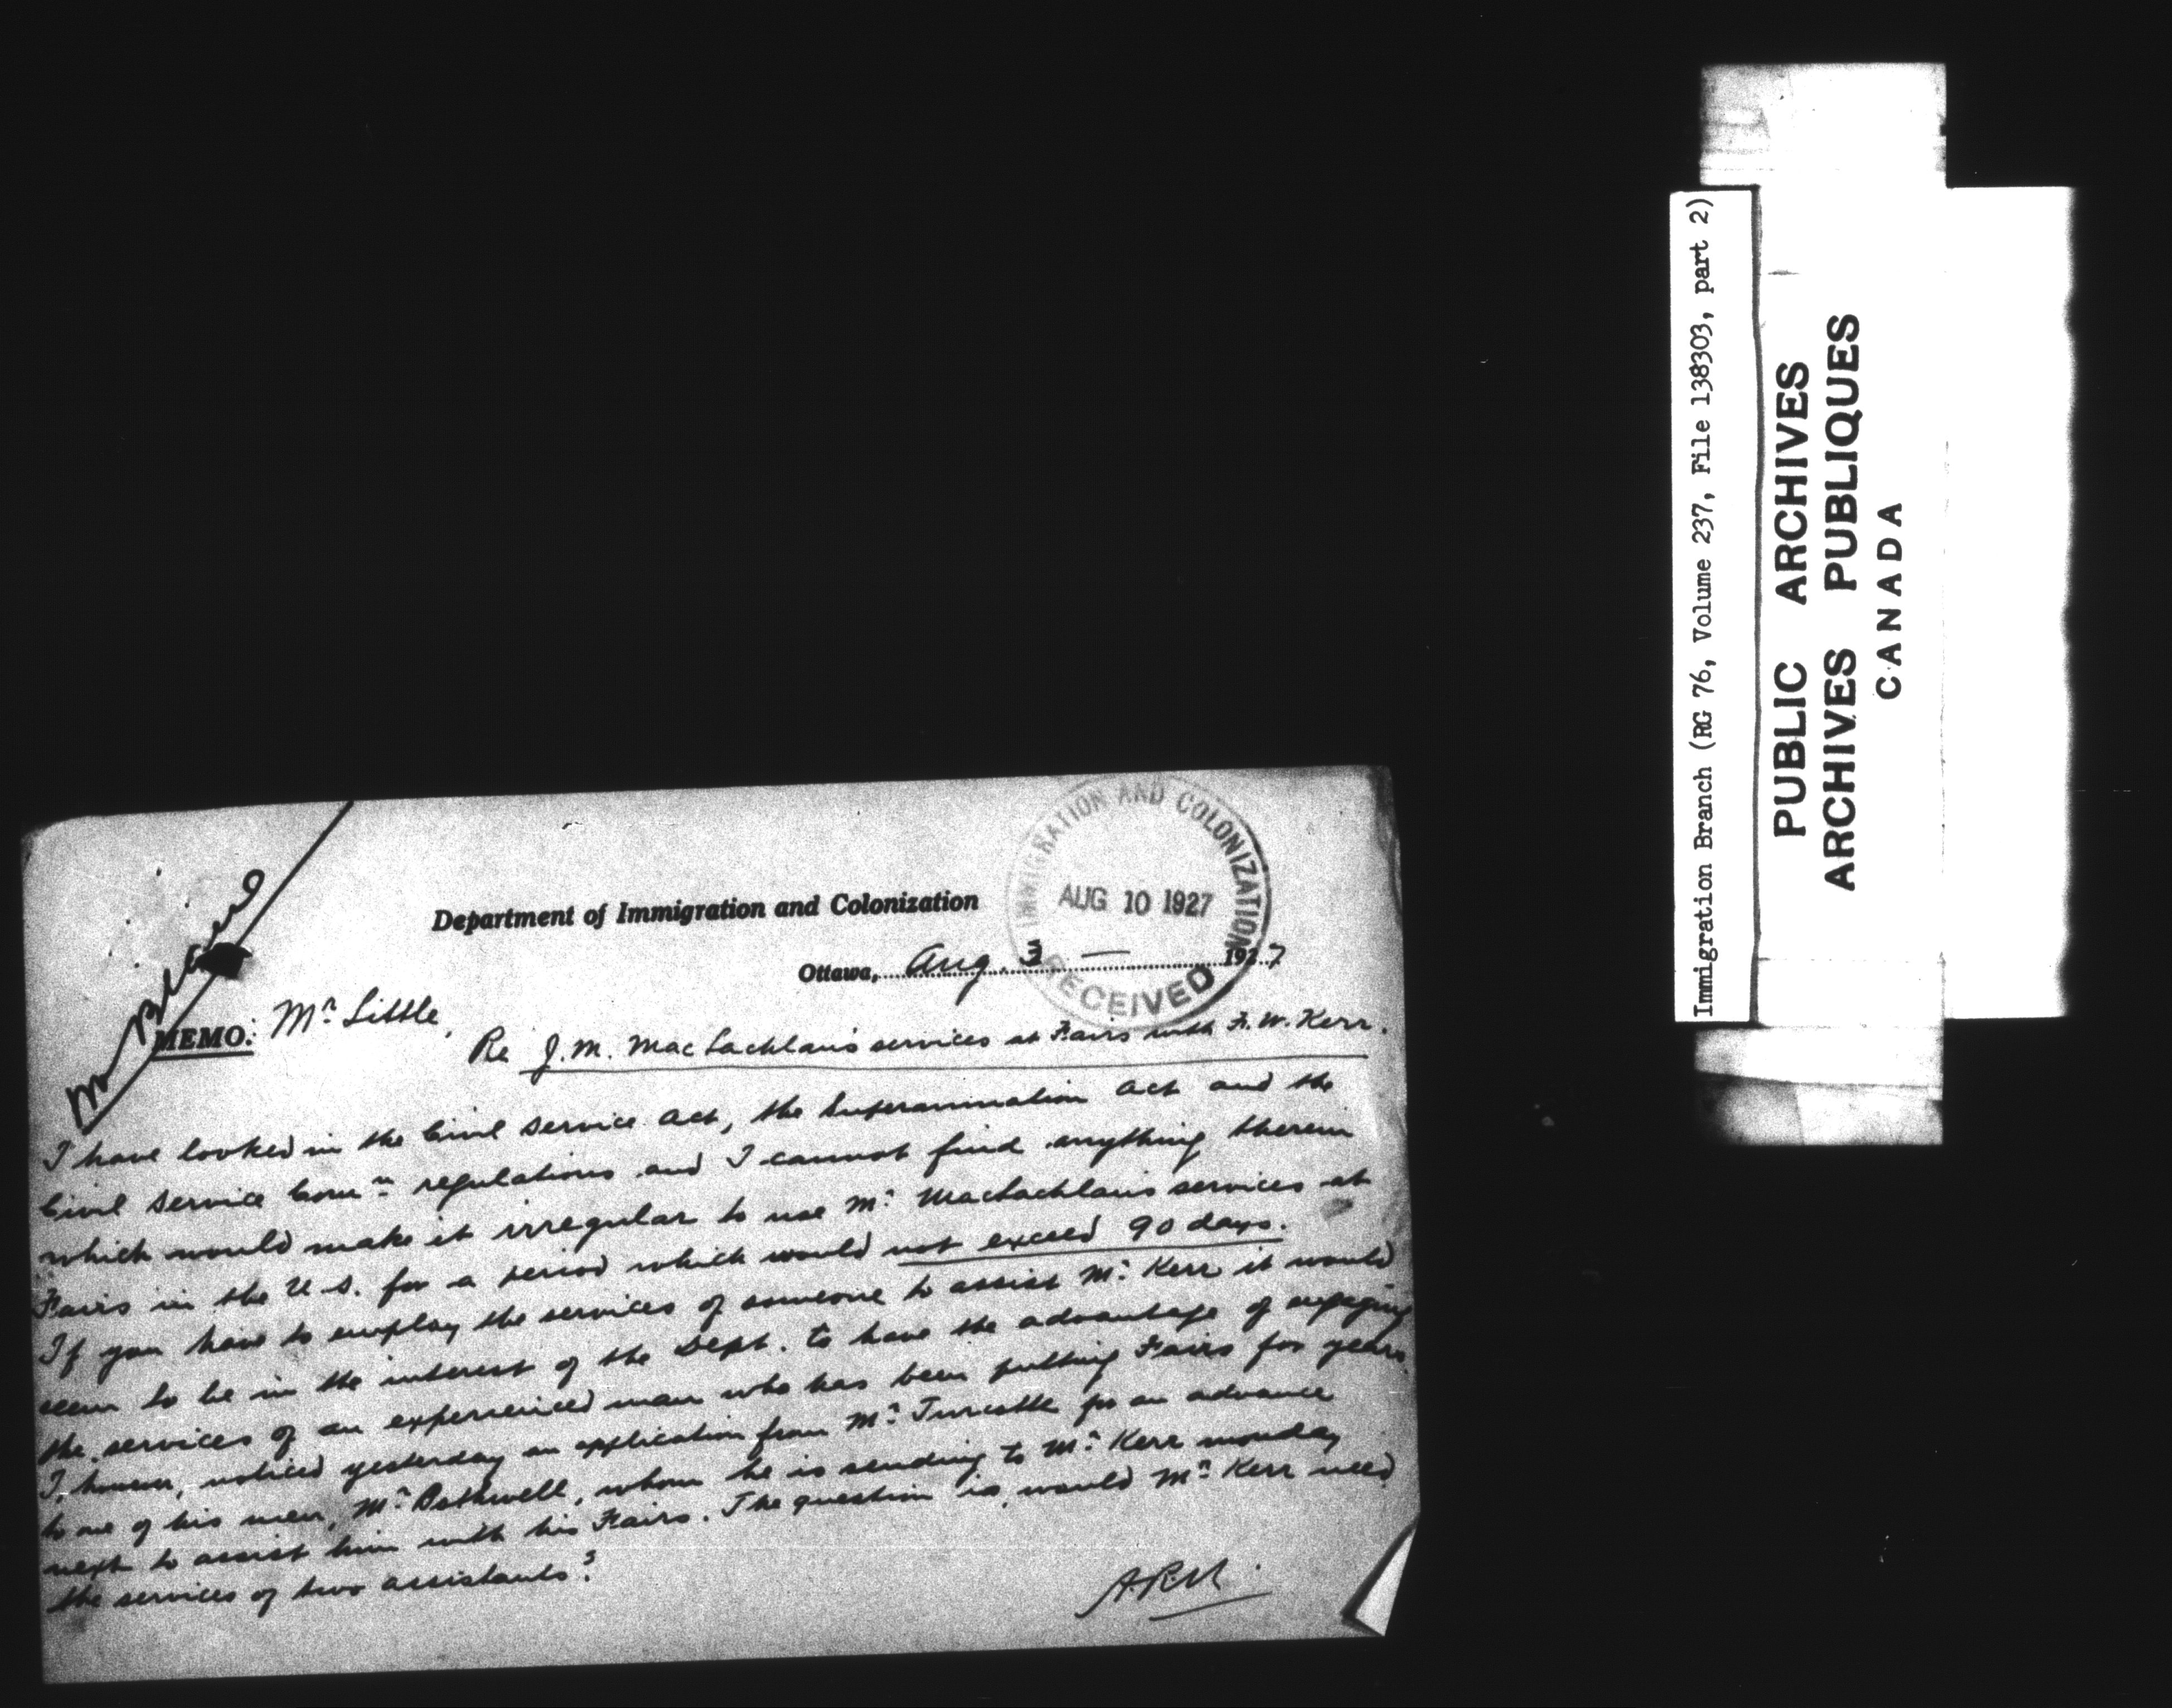 Department of Immigration and Colonization
IMMIGRATION AND COLONIZATION
AUG 10 1927
RECEIVED
Ottawa, Aug. 3 — 1927
MEMO: Mr. Little,
Re J. M. MacLachlan's services at Fairs with F. W. Kerr.
I have looked in the Civil Service Act, the Superannuation Act and the
Civil Service Comn regulations and I cannot find anything therein
which would make it irregular to use Mr. MacLachlan's services at
Fairs in the U.S. for a period which would not exceed 90 days.
If you have to employ the services of someone to assist Mr. Kerr it would
seem to be in the interest of the Dept. to have the advantage of engaging
the services of an experienced man who has been putting Fairs for years.
I, however, noticed yesterday an application from Mr. Turcotte for an advance
to one of his men, Mr. Bothwell, whom he is sending to Mr. Kerr Monday
next to assist him with his Fairs. The question is, would Mr. Kerr need
the services of two assistants?
Immigration Branch (RG 76, Volume 237, File 138303, part 2)
PUBLIC ARCHIVES
ARCHIVES PUBLIQUES
CANADA